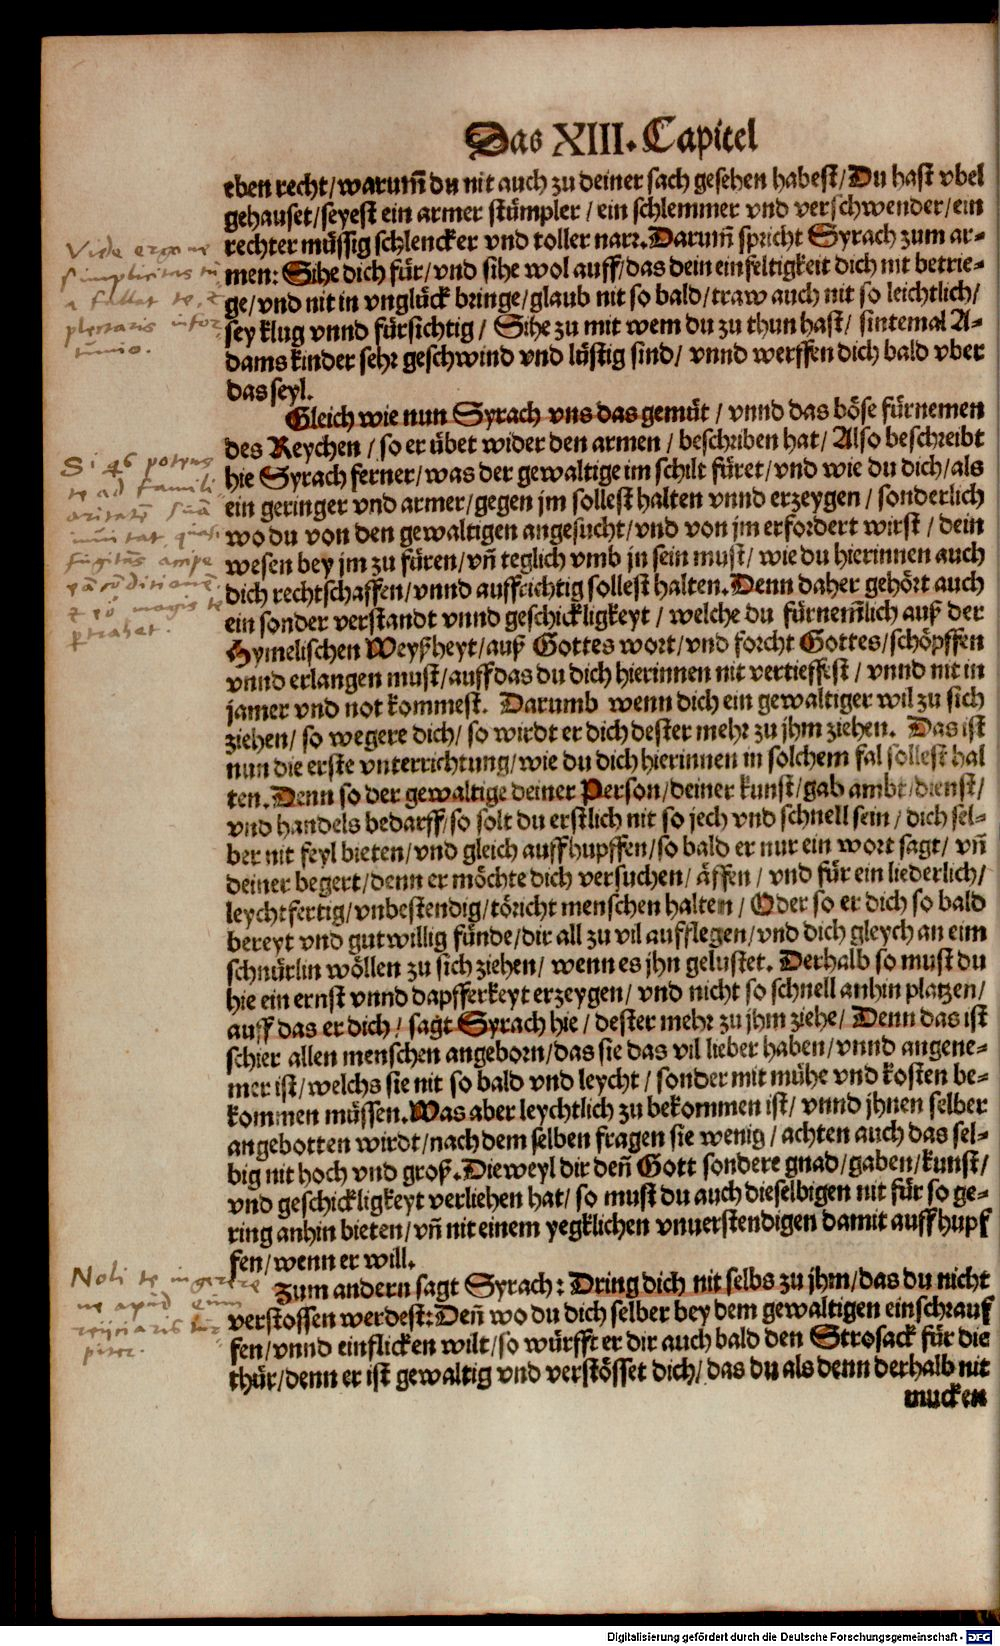 Das XIII. Capitel
eben recht/warum̃ du nit auch zu deiner sach gesehen habest/Du hast vbel
gehauset/seyest ein armer stümpler / ein schlemmer vnd verschwender/ein
rechter müssig schlencker vnd toller narr. Darum̃ spricht Syrach zum ar-
men: Sihe dich für/vnd sihe wol auff/das dein einfeltigkeit dich nit betrie-
ge/vnd nit in vnglück bringe/glaub nit so bald/traw auch nit so leichtlich/
sey klug vnnd fürsichtig / Sihe zu mit wem du zu thun hast/ sintemal A-
dams kinder sehr geschwind vnd lüstig sind/ vnnd werffen dich bald vber
das seyl.
Gleich wie nun Syrach vns das gemüt / vnnd das böse fürnemen
des Reychen / so er übet wider den armen / beschriben hat/ Also beschreibt
hie Syrach ferner/was der gewaltige im schilt füret/vnd wie du dich/als
ein geringer vnd armer/gegen jm sollest halten vnnd erzeygen / sonderlich
wo du von den gewaltigen angesucht/vnd von jm erfordert wirst / dein
wesen bey jm zu füren/vñ teglich vmb jn sein must/ wie du hierinnen auch
dich rechtschaffen/vnnd auffrichtig sollest halten. Denn daher gehört auch
ein sonder verstandt vnnd geschickligkeyt / welche du fürnem̃lich auß der
Hymelischen Weyßheyt/auß Gottes wort/vnd forcht Gottes/schöpffen
vnnd erlangen must/auff das du dich hierinnen nit vertieffest / vnnd nit in
jamer vnd not kommest. Darumb wenn dich ein gewaltiger wil zu sich
ziehen/ so wegere dich/ so wirdt er dich dester mehr zu jhm ziehen. Das ist
nun die erste vnterrichtung/wie du dich hierinnen in solchem fal sollest hal
ten. Denn so der gewaltige deiner Person/deiner kunst/gab ambt/dienst/
vnd handels bedarff/so solt du erstlich nit so jech vnd schnell sein / dich sel-
ber nit feyl bieten/vnd gleich auffhupffen/so bald er nur ein wort sagt/ vñ
deiner begert/denn er möchte dich versuchen/ äffen / vnd für ein liederlich/
leychtfertig/vnbestendig/töricht menschen halten / Oder so er dich so bald
bereyt vnd gutwillig fünde/dir all zu vil aufflegen/vnd dich gleych an eim
schnürlin wöllen zu sich ziehen/ wenn es jhn gelustet. Derhalb so must du
hie ein ernst vnnd dapfferkeyt erzeygen/ vnd nicht so schnell anhin platzen/
auff das er dich / sagt Syrach hie / dester mehr zu jhm ziehe/ Denn das ist
schier allen menschen angeborn/das sie das vil lieber haben/vnnd angene-
mer ist/welchs sie nit so bald vnd leycht / sonder mit mühe vnd kosten be-
kommen müssen. Was aber leychtlich zu bekommen ist/ vnnd jhnen selber
angebotten wirdt/nach dem selben fragen sie wenig / achten auch das sel-
big nit hoch vnd groß. Dieweyl dir deñ Gott sondere gnad/gaben/kunst/
vnd geschickligkeyt verliehen hat/ so must du auch dieselbigen nit für so ge-
ring anhin bieten/vñ nit einem yegklichen vnuerstendigen damit auffhupf
fen/wenn er will.
Zum andern sagt Syrach: Dring dich nit selbs zu jhm/das du nicht
verstossen werdest: Deñ wo du dich selber bey dem gewaltigen einschrauf
fen/vnnd einflicken wilt/so würfft er dir auch bald den Strosack für die
thür/denn er ist gewaltig vnd verstösset dich/ das du als denn derhalb nit
mucken
Vide ergo ne
simplicitas tu
a fallat te,
plectaris infor
tunio.
Si qs potens
te ad famili
aritatē suā
inuitat, quasi
fugitās
magis te
ptrahet.
Noli te ingerere
ne apud eum
reijciaris tur
piter.
Digitalisierung gefördert durch die Deutsche Forschungsgemeinschaft - DFG